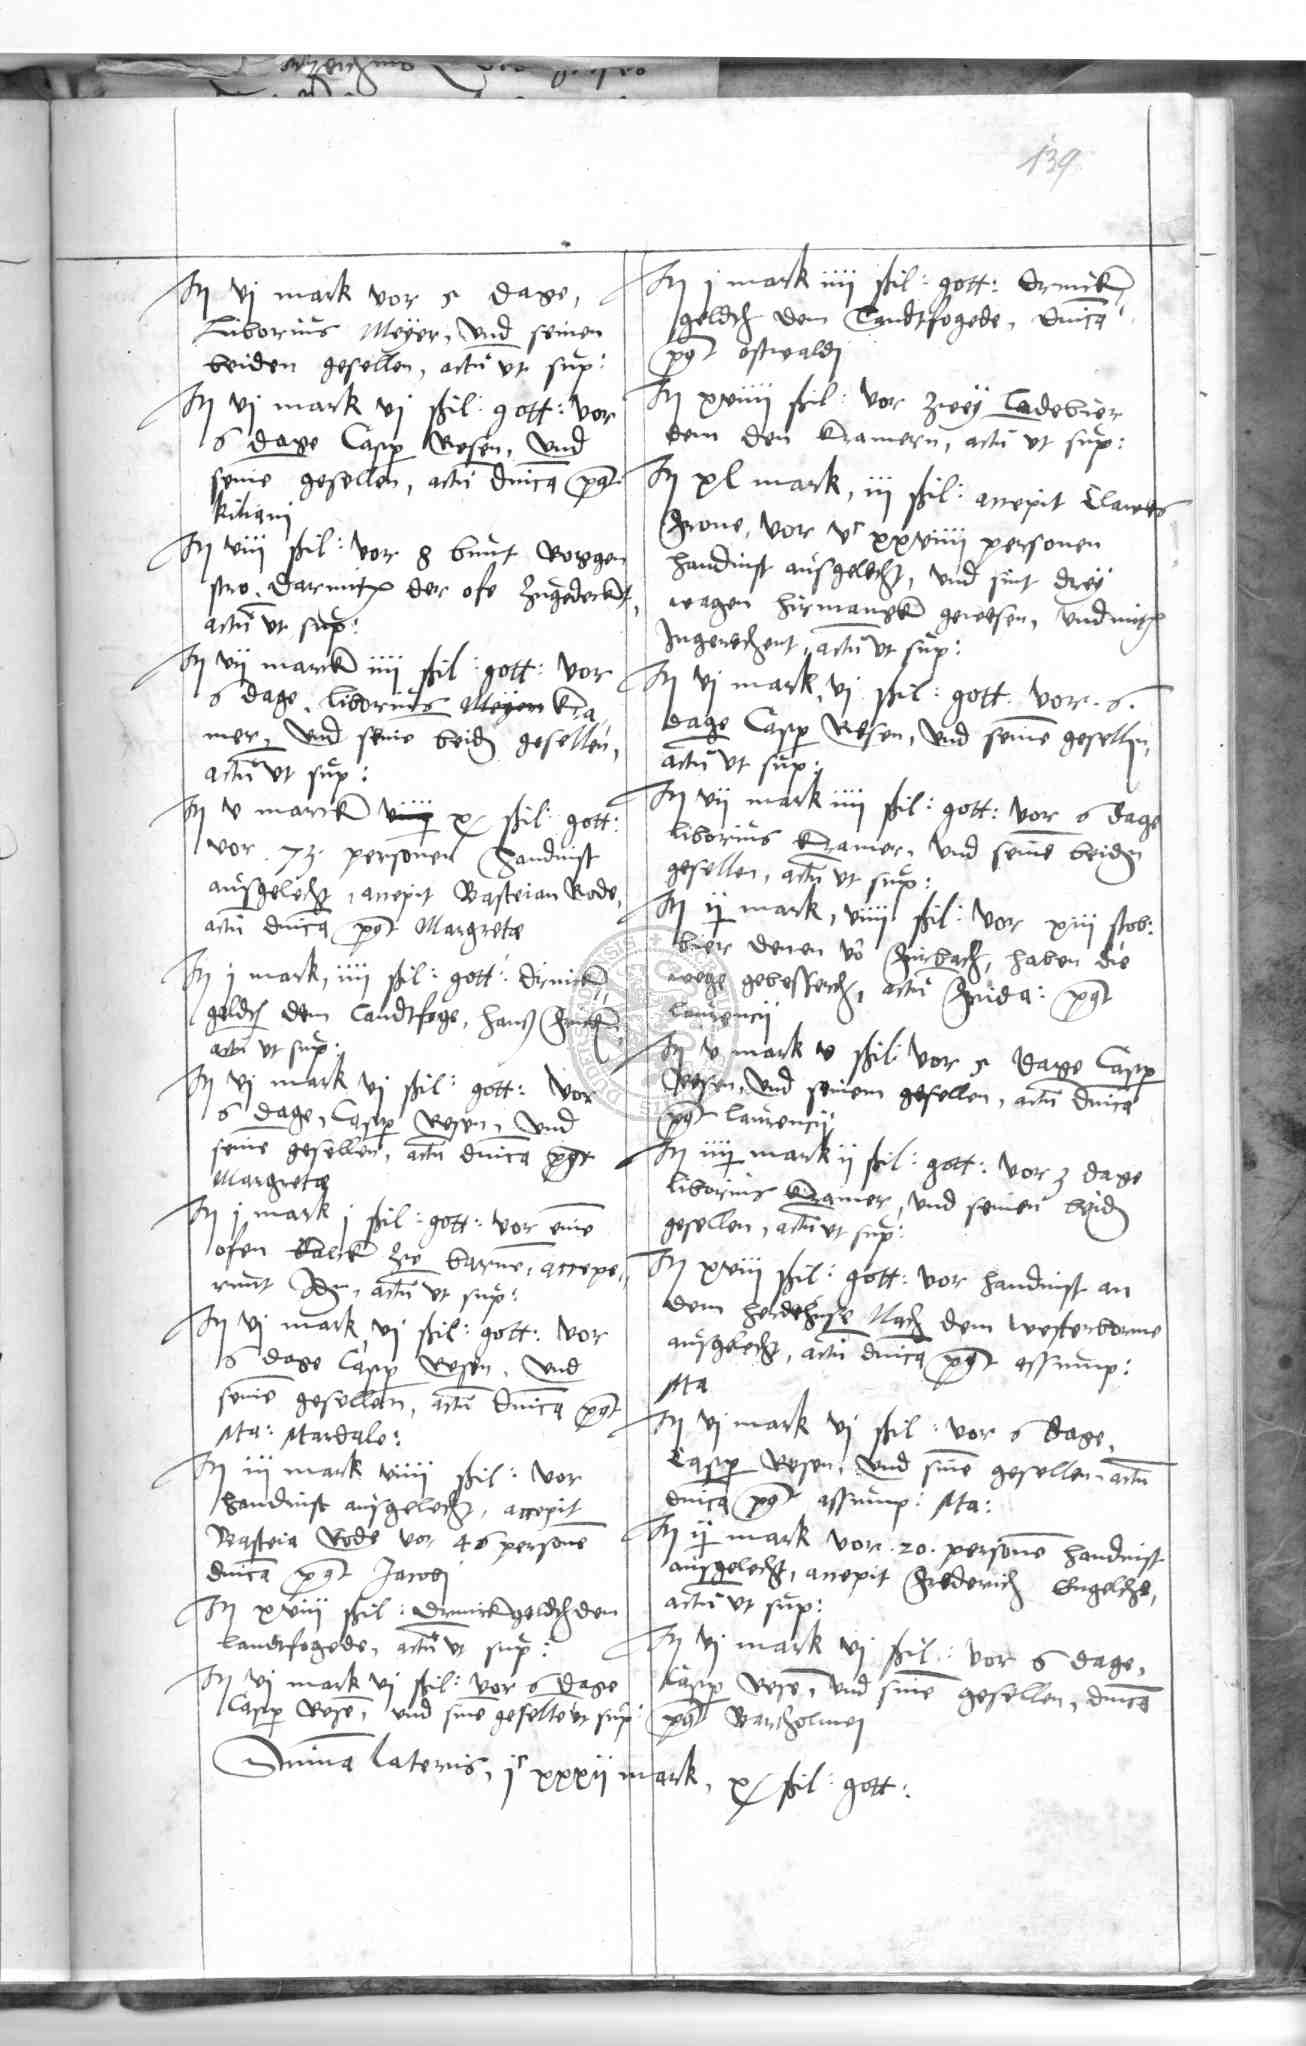 139
It vj mark vor 5 dage,
Liborius Meÿer, vnd seinen
beiden gesellen, actū vt sup:
It vj mark vj ßil: gott: vor
6 dage Casp Resen, vnd
seine gesellen, actū dnica pꝰt
kiliani
It viii ßil: vor 8 bunt Roggen
stro, darmit der ofe zugedeckt,
actū vt sup:
It vij marck iiii ßil: gott: vor
6 dage, liborius Meyer kra
mer, vnd seine beidn gesellen,
actū vt sup:
It v marck x ßil: gott:
vor 73 personen handinst
ausgelecht, accepit Basteian Rode,
actū dnica pꝰt Margretæ
It j mark, iiii ßil: gott: drinck
geldt dem Landtfoge, hans
actū vt sup:
It vj mark vj ßil: gott: vor
6 dage, Casp Resen, vnd
seine gesellen, actū dnica pꝰt
Margretæ
It j mark j ßil: gott: vor eine
ofen kalck zu barne, accepe
runt Idn, actū vt sup:
It vj mark vj ßil: gott: vor
6 dage Casp Resen, vnd
seine gesellen, actū dnica pꝰt
Ma: Mardale:
It iii mark viiii ßil: vor
handinst ausgelecht, accepit
Basteia Rode vor 46 persone
dnica pꝰt Jacobj
It xviiii ßil: drinckgeldt dem
landtfogede, actū vt sup:
It vj mark vj ßil: vor 6 dage
Casp Rese, vnd sine geselle vt sup:
It j mark iiii ßil: gott: drinck
geldt dem Landtfogede, dnica
pꝰt ostwaldj
It xviiii ßil: vor zweÿ Ladebier
dem den kramern, actū vt sup:
It xl mark, iii ßil: accepit Clawes
Frone, vor vᶜ xxviiii personen
handinst ausgelecht, vnd sint dreÿ
wagen gewesen, vnd mit
Ingerechent, actū vt sup:
It vj mark, vj ßil: gott: vor 6
dage Casp Resen, vnd seine geselln,
actū vt sup:
It vij mark iiii ßil: gott: vor 6 dage
liborius kramer, vnd seine beidn
gesellen, actū vt sup:
It mark, viiii ßil: vor xiii stob:
bier denen vō haben die
wege gebessert, actū pꝰt
laurencij
It v mark v ßil: vor 5 dage Casp
Resen, vnd seinem gesellen, actū dnica
pꝰt laurencij
It mark ii ßil: gott: vor 3 dage
liborius kramer, vnd seinen beidn
gesellen, actū vt sup:
It xviii ßil: gott: vor handinst an
dem Nach dem westerborne
ausgelecht, actū dnica pꝰt assump:
Ma
It vj mark vj ßil: vor 6 dage,
Casp Resen, vnd sine gesellen, actū
dnica pꝰt assump: Ma:
It mark vor 20 persone handinst
ausgelecht, accepit Frederich Engelche,
actū vt sup:
It vj mark vj ßil: vor 6 dage,
Casp Rese, vnd sine gesellen, dnica
pꝰt Bartholmej
Suma lateris, jᶜ xxxij mark, x ßil: gott: